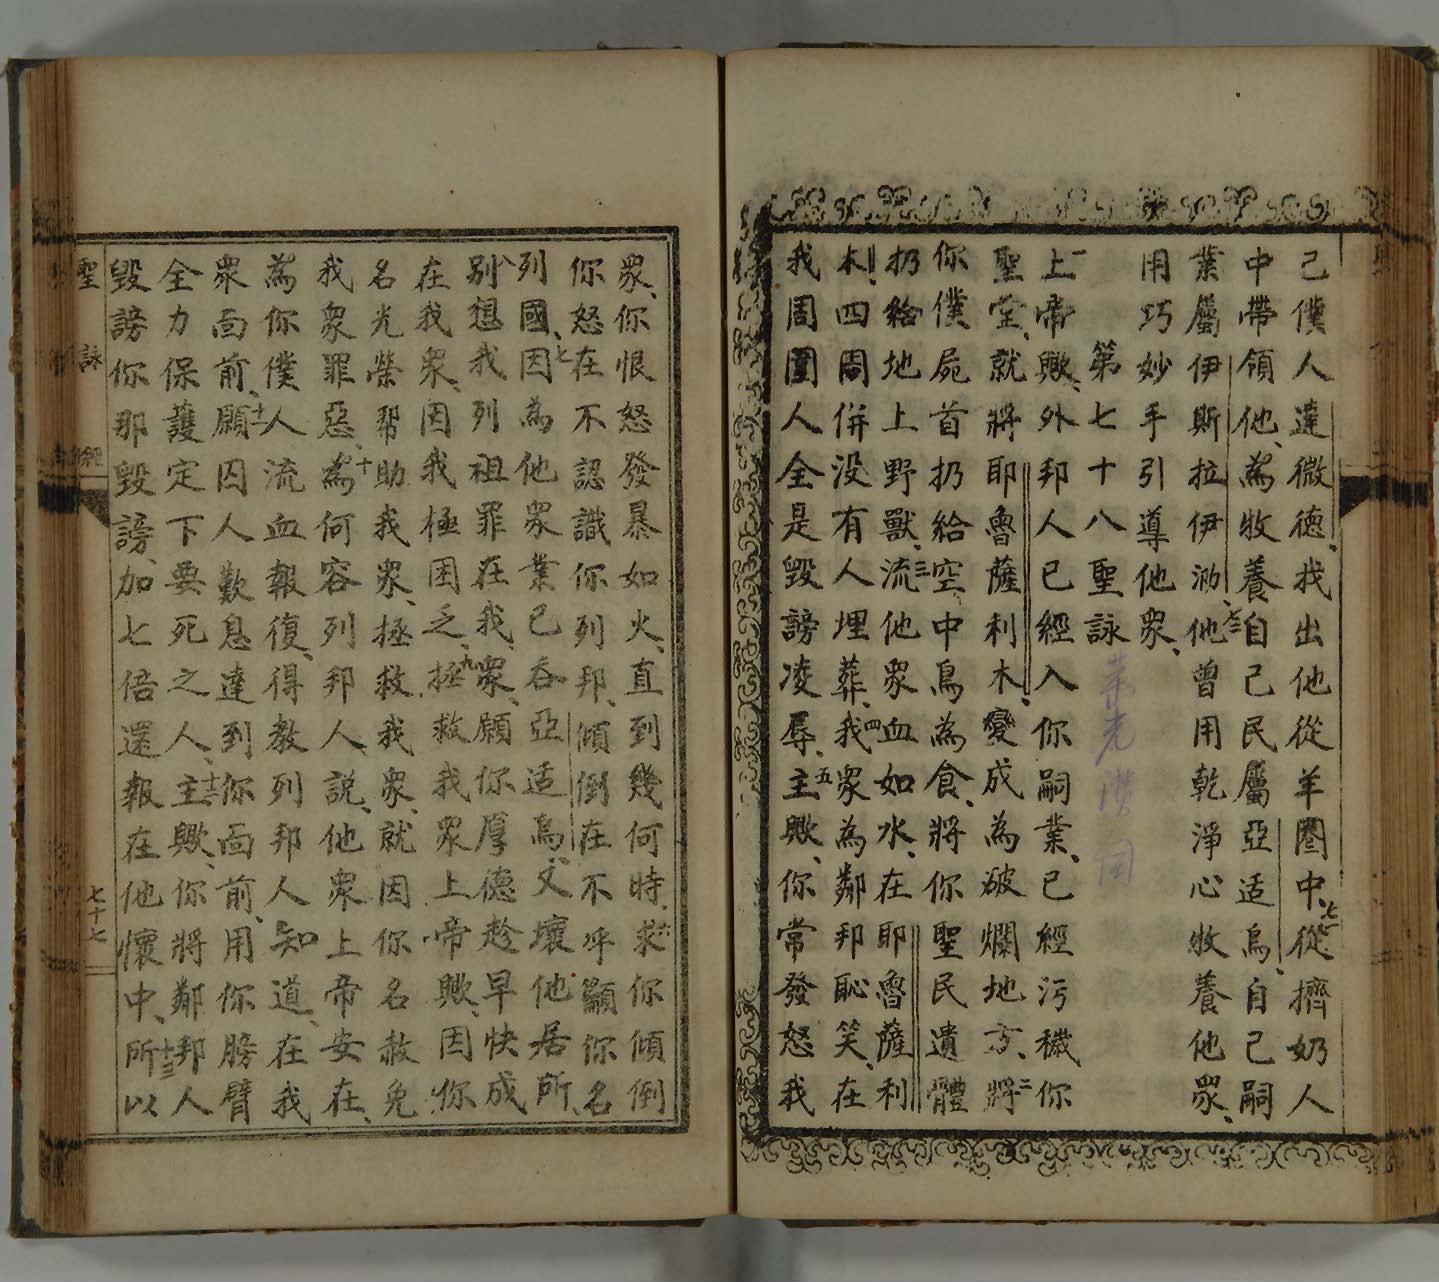 己僕人達微德、我出他從羊圈中、七一從擠奶人
中帶領他、為牧養自己民屬亞适烏、自己嗣
業屬伊斯拉伊泐、七二他曾用乾淨心牧養他眾、
用巧妙手引導他眾、
第七十八聖詠
一上帝歟、外邦人已經入你嗣業、已經污穢你
聖堂、就將耶魯薩利木、變成為破爛地方、二將
你僕屍首扔給空中鳥為食、將你聖民遺體
扔給地上野獸、三流他眾血如水、在耶魯薩利
木、四周併沒有人埋葬、四我眾為鄰邦恥笑、在
我周圍人全是毀謗凌辱、五主歟、你常發怒我
眾、你恨怒發暴如火、直到幾何時、六求你傾倒
你怒在不認識你列邦、傾倒在不呼籲你名
列國、七因為他眾業已吞亞适烏、又壞他居所、
八別想我列祖罪在我眾、願你厚德趁早快成
在我眾、因我極困乏、九拯救我眾上帝歟、因你
名光榮幫助我眾、拯救我眾、就因你名赦免
我眾罪惡、十為何容列邦人說、他眾上帝安在、
為你僕人流血報復、得教列邦人知道、在我
眾面前、十一願囚人歎息達到你面前、用你膀臂
全力保護定下要死之人、十二主歟、你將鄰邦人
毀謗你那毀謗、加七倍還報在他懷中、十三所以
聖詠經
七十七